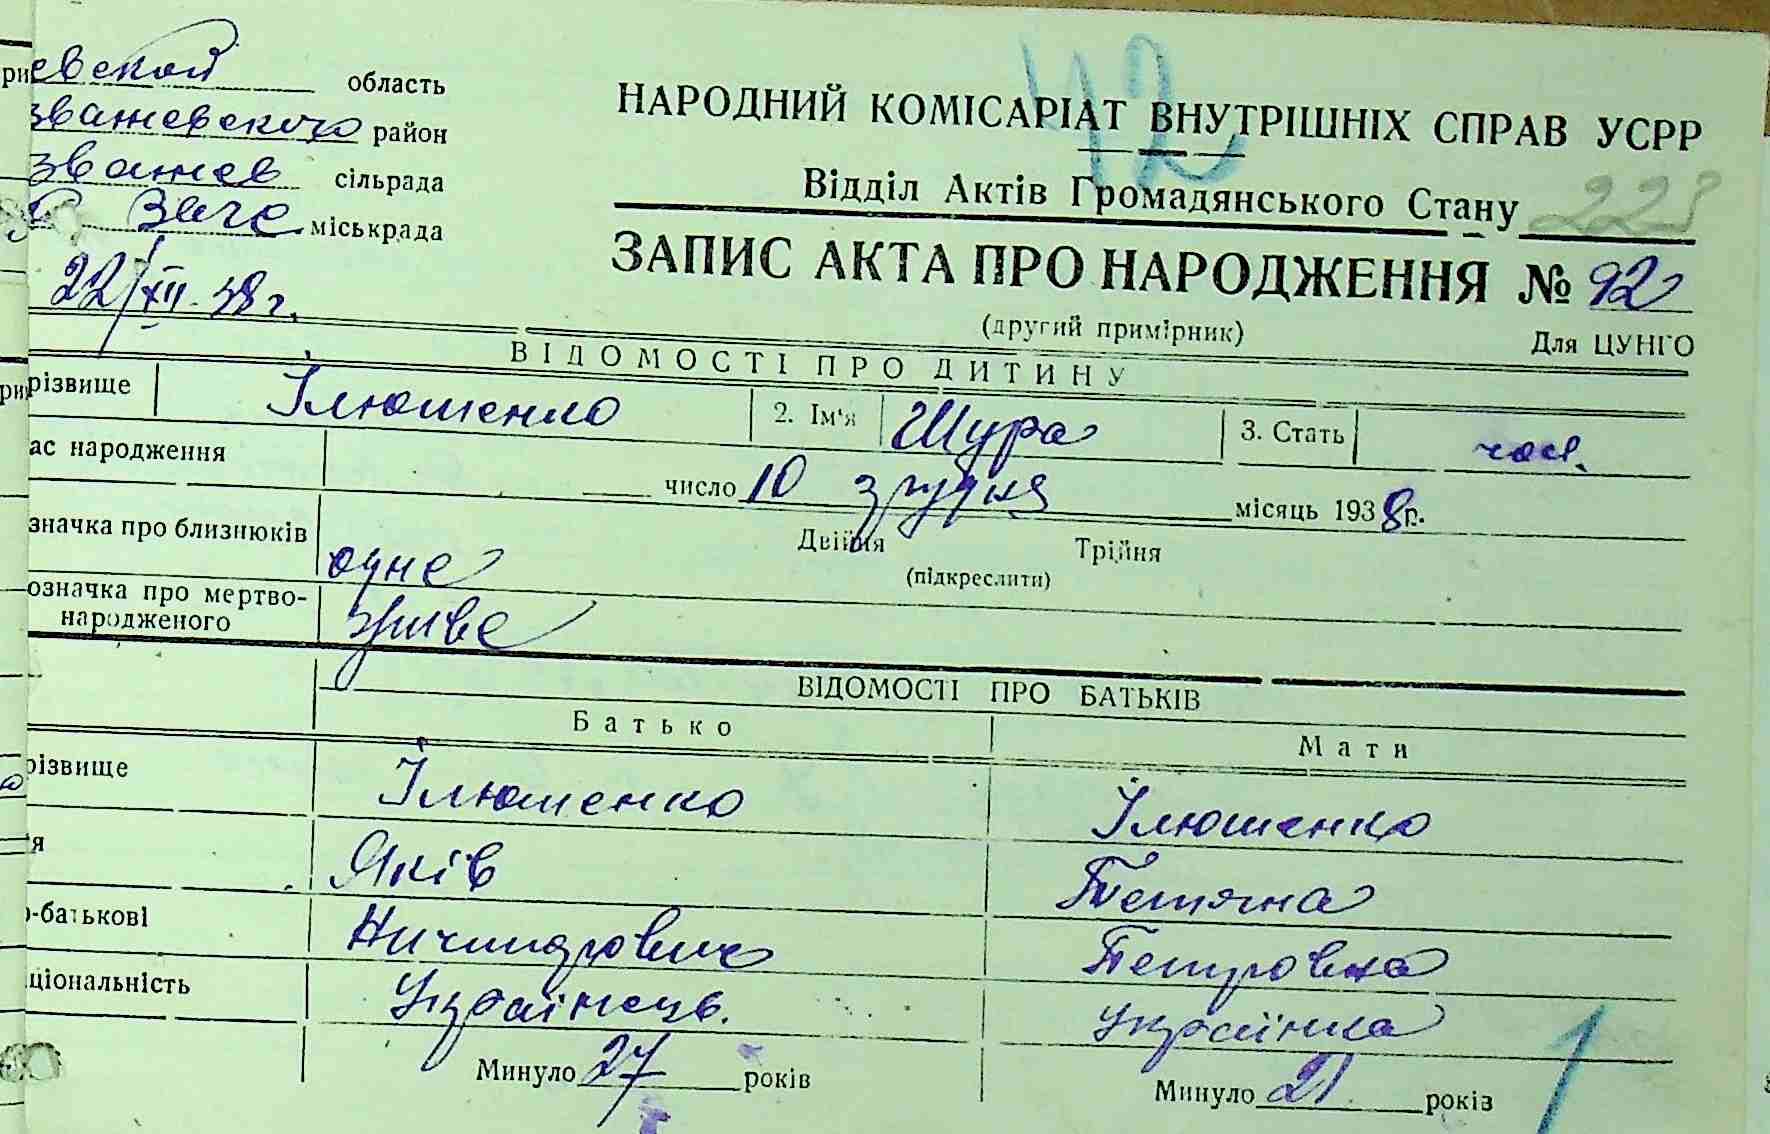 евской область
звашевского район
звашев сільрада
С. Заче міськрада
22/XII-38 г.
42
НАРОДНИЙ КОМІСАРІАТ ВНУТРІШНІХ СПРАВ УСРР
Відділ Актів Громадянського Стану 223
ЗАПИС АКТА ПРО НАРОДЖЕННЯ № 92
(другий примірник) Для ЦУНГО
ВІДОМОСТІ ПРО ДИТИНУ
різвище Ілюшенко 2. Ім'я Шура 3. Стать чол.
ас народження число 10 грудня місяць 1938 р.
значка про близнюків одне Двійня Трійня
(підкреслити)
означка про мертво-
народженого живе
ВІДОМОСТІ ПРО БАТЬКІВ
Батько Мати
різвище Ілюшенко Ілюшенко
я Яків Тетяна
о-батькові Ничипрович Петровна
ціональність Українець. Українка
Минуло 27 років Минуло 21 років